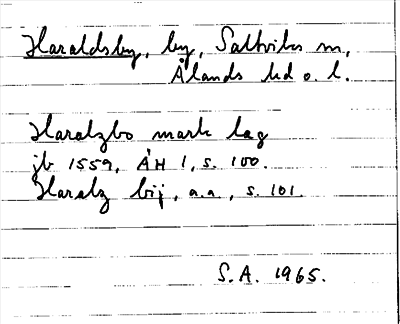 Haraldsby, by, Saltviks sn,
Ålands hd o. l.
Haralzbo mark lag
jb 1559, ÅH 1, s. 100.
Haralz bij, a.a., s. 101.
S.A. 1965.